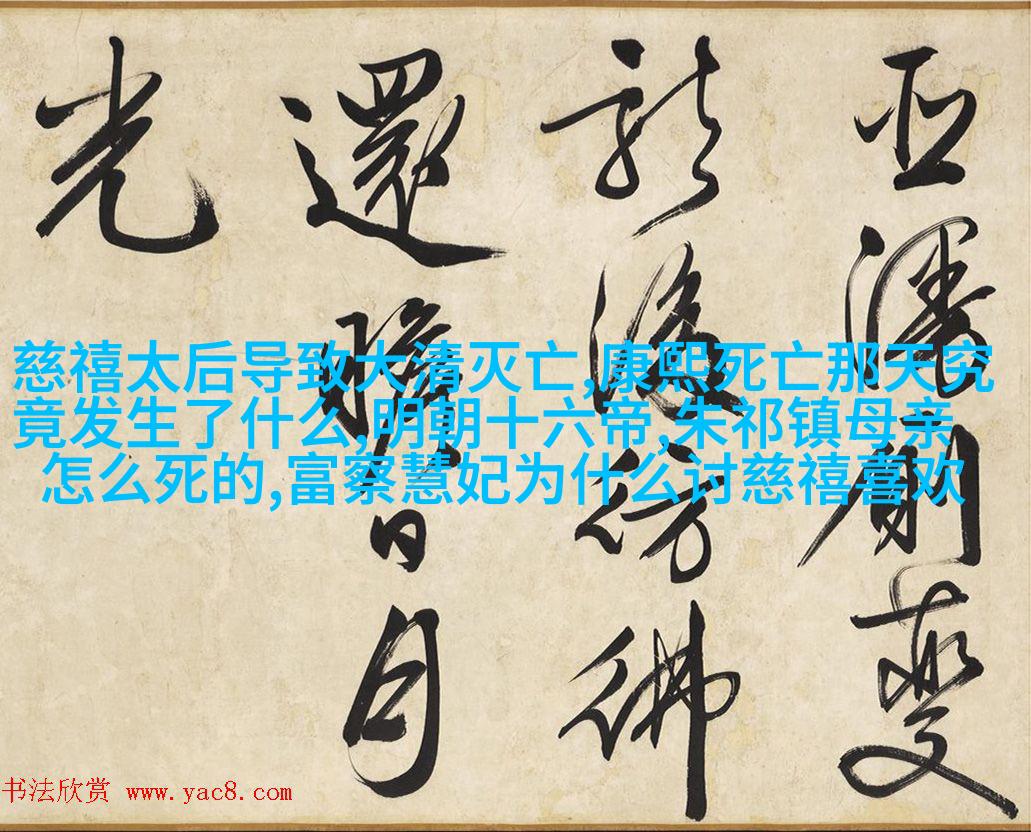 後彷彿
還瞻日月
光
慈禧太后导致大清灭亡,康熙死亡那天究
竟发生了什么,明朝十六帝,朱祁镇母亲
怎么死的,富察慧妃为什么讨慈禧喜欢
书法欣赏 www.yac8.com